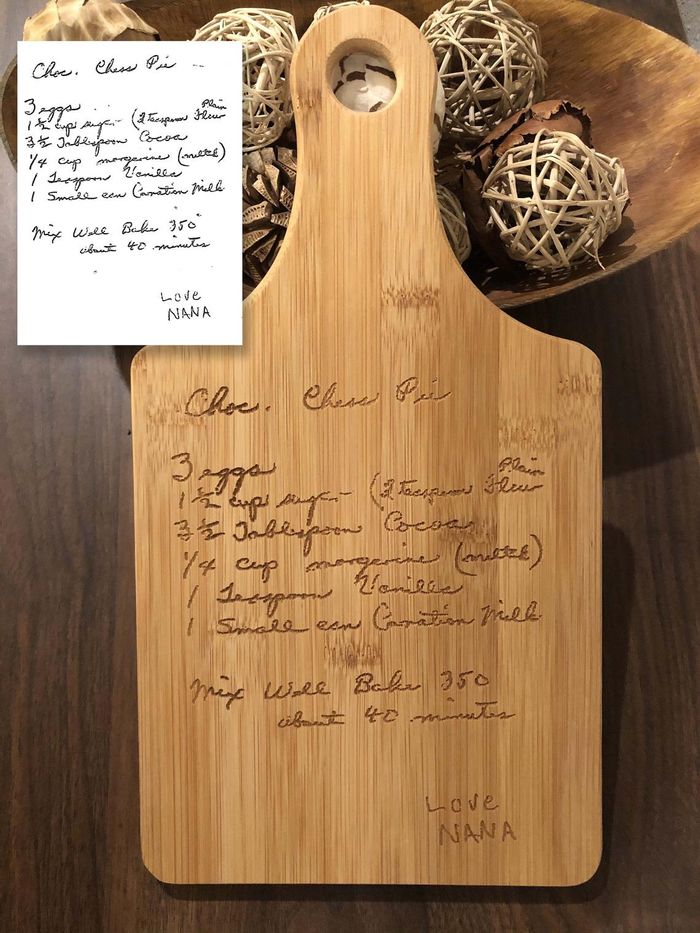 Choc. Chess Pie
3 eggs
Plain
1 ½ cup sugar (2 teaspoon Flour
3 ½ Tablespoon Cocoa
1/4 cup margerine (melted)
1 Teaspoon Vanilla
1 Small can Carnation Milk
Mix Well Bake 350°
about 40 minutes
LOVE
NANA
Choc. Chess Pie
3 eggs
Plain
1 ½ cup sugar (2 teaspoon Flour
3 ½ Tablespoon Cocoa
1/4 cup margerine (melted)
1 Teaspoon Vanilla
1 Small can Carnation Milk
Mix Well Bake 350
about 40 minutes
LOVE
NANA